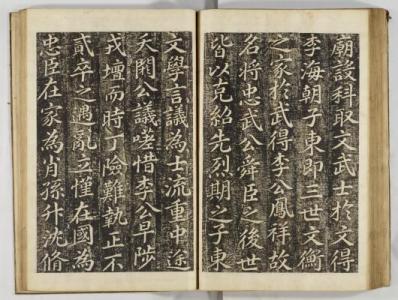 廟設科取文武士於文得
李海朝子東即三世文衡
之家於武得李公鳳祥故
名將忠武公舜臣之後世
皆以克紹先烈期之子東
文學言議為士流重中途
夭閼公議嗟惜李公早陟
戎壇而時丁險難執正不
貳卒之遇亂立慬在國為
忠臣在家為肖孫升沈脩